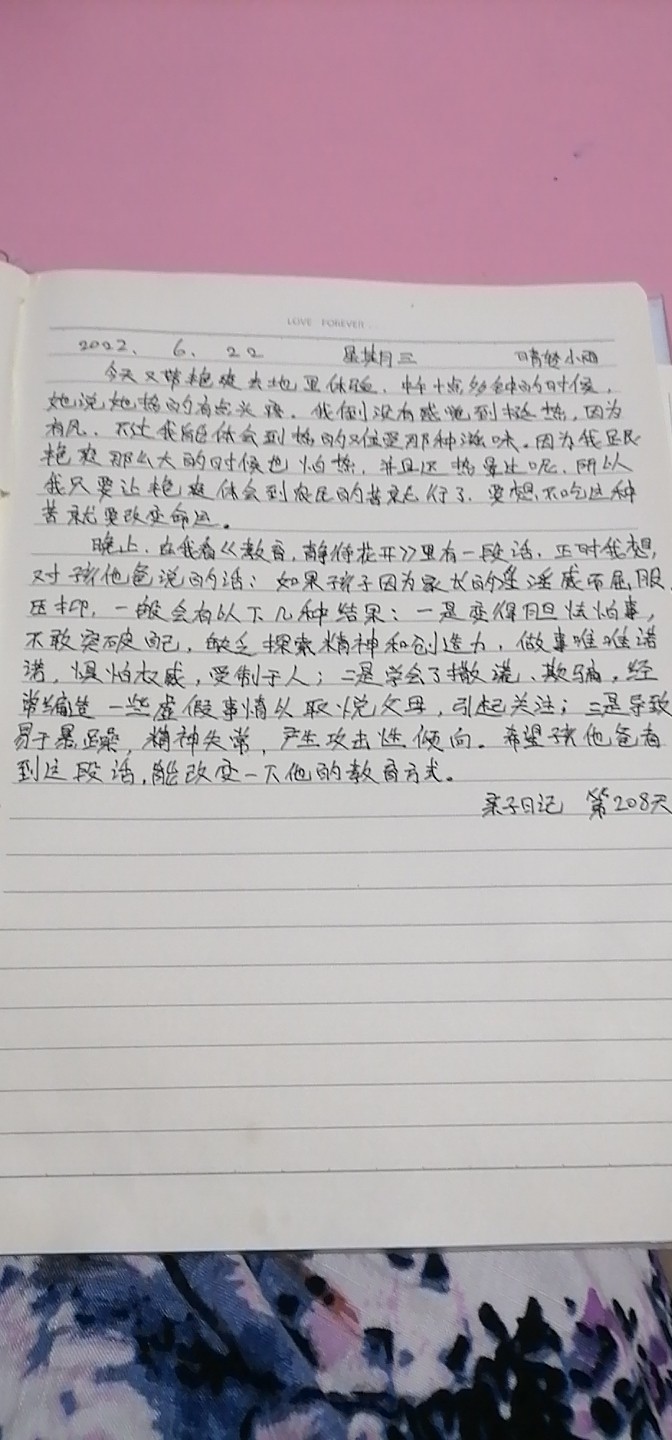 LOVE FOREVER
2022. 6. 22 星期三 晴转小雨
今天又带艳爽去地里体验,十点多钟的时候,
她说她热的有点头疼。我倒没有感觉到挺热,因为
有风,不过我能体会到热的难受那种滋味。因为我跟
艳爽那么大的时候也怕热,并且还热晕过呢,所以
我只要让艳爽体会到农民的苦就行了,要想不吃这种
苦就要改变命运。
晚上,在我看《教育,静待花开》里有一段话,正时我想
对孩他爸说的话:如果孩子因为家长的淫威而屈服
压抑,一般会有以下几种结果:一是变得胆怯怕事,
不敢突破自己,缺乏探索精神和创造力,做事唯唯诺
诺,惧怕权威,受制于人;二是学会了撒谎、欺骗,经
常编造一些虚假事情以取悦父母,引起关注;三是导致
易于暴躁,精神失常,产生攻击性倾向。希望孩他爸看
到这段话,能改变一下他的教育方式。
亲子日记 第208天